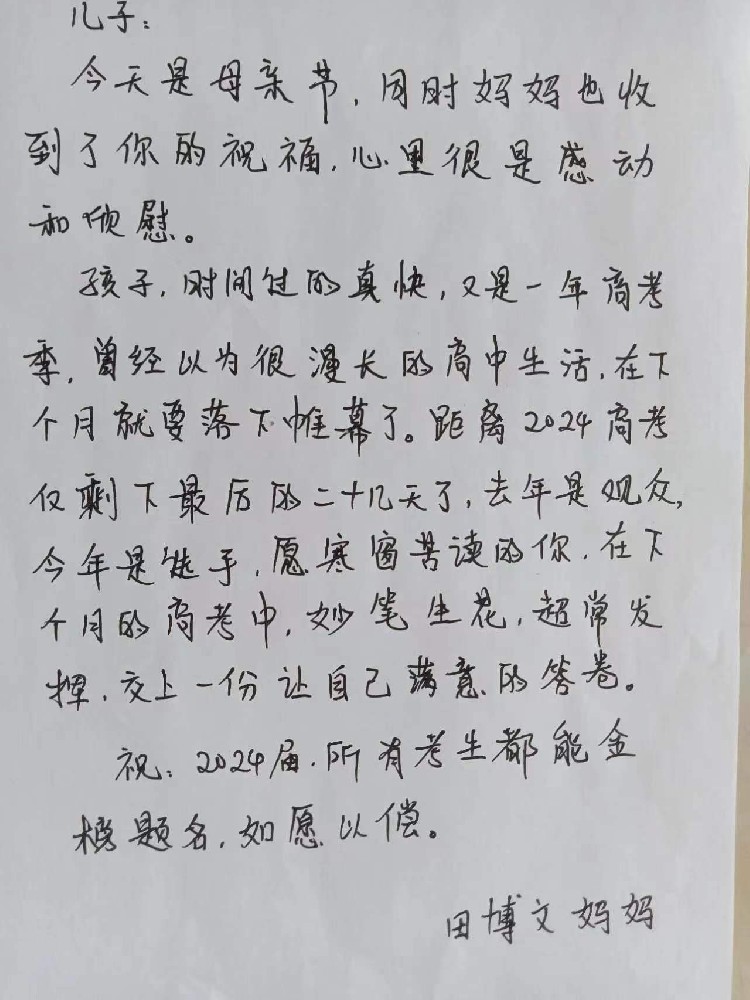 儿子：
今天是母亲节，同时妈妈也收
到了你的祝福，心里很是感动
和欣慰。
孩子，时间过的真快，又是一年高考
季，曾经以为很漫长的高中生活，在下
个月就要落下帷幕了。距离2024高考
仅剩下最后的二十几天了，去年是观众，
今年是选手，愿寒窗苦读的你，在下
个月的高考中，妙笔生花，超常发
挥，交上一份让自己满意的答卷。
祝：2024届.所有考生都能金
榜题名，如愿以偿。
田博文妈妈